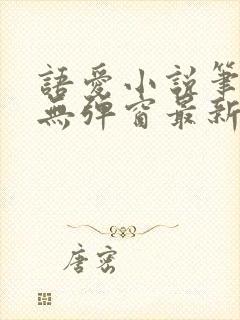 語愛小說筆
無彈窗最新
唐密